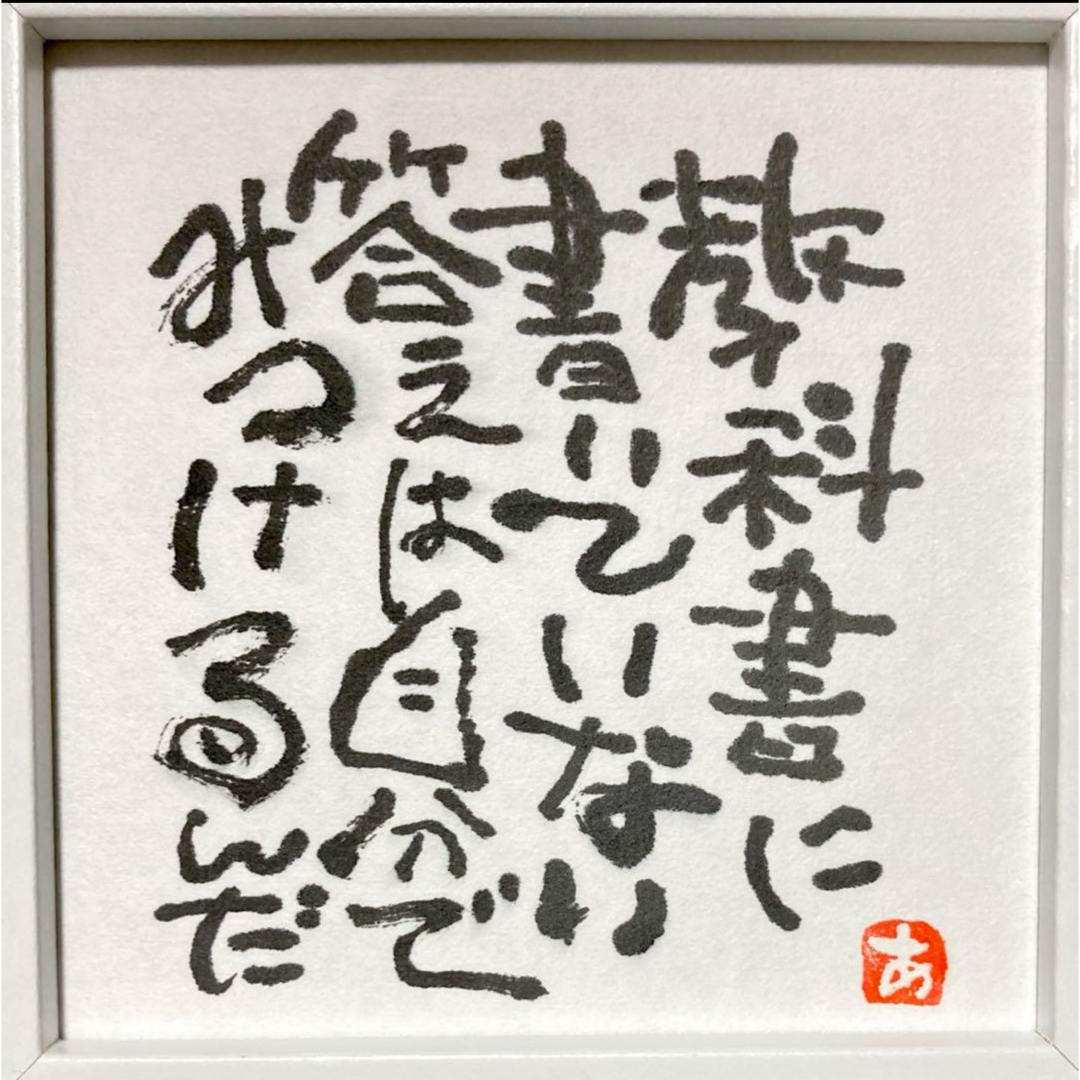 教科書に
書いていない
答えは自分で
みつけるんだ
あ